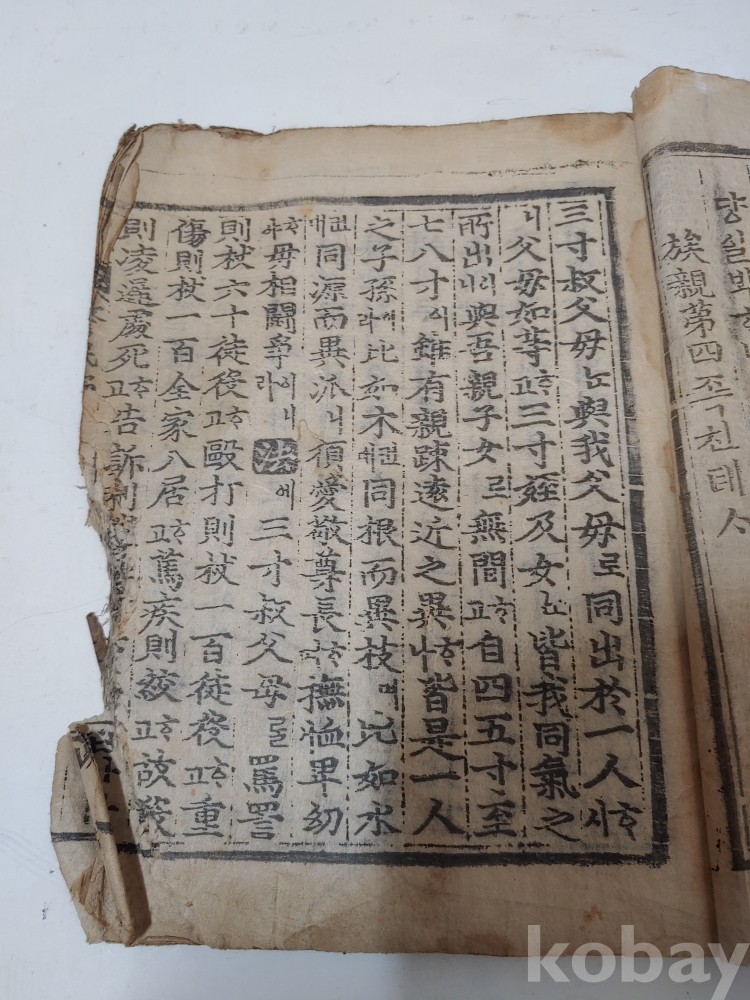 族親第四 족친뎨ᄉ
三寸叔父母ᄂᆞᆫ與我父母로同出於一人ᄒᆞ시
니父母如等ᄒᆞ고三寸姪及女ᄂᆞᆫ皆我同氣之
所出이니與吾親子女로無間ᄒᆞ고自四五寸至
七八寸이雖有親疎遠近之異ᄒᆞ나皆是一人
之子孫이라比如木컨대同根而異枝며比如水
컨대同源而異派니須愛敬尊長ᄒᆞ며撫恤卑幼
ᄒᆞ야毋相鬪爭이니라法에三寸叔父母를罵詈
則杖六十徒役ᄒᆞ고毆打則杖一百徒役ᄒᆞ고重
傷則杖一百全家入居ᄒᆞ고篤疾則絞ᄒᆞ고故殺
則凌遲處死ᄒᆞ고告訴則杖
kobay